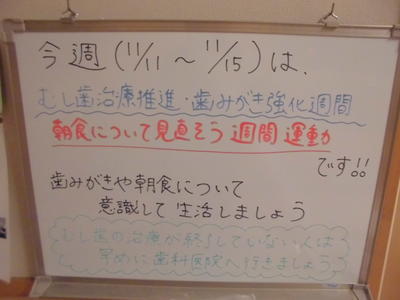 今週(11/11～11/15)は、
むし歯治療推進・歯みがき強化週間
朝食について見直そう週間運動
です!!
歯みがきや朝食について
意識して生活しましょう
むし歯の治療が終了していない人は
早めに歯科医院へ行きましょう